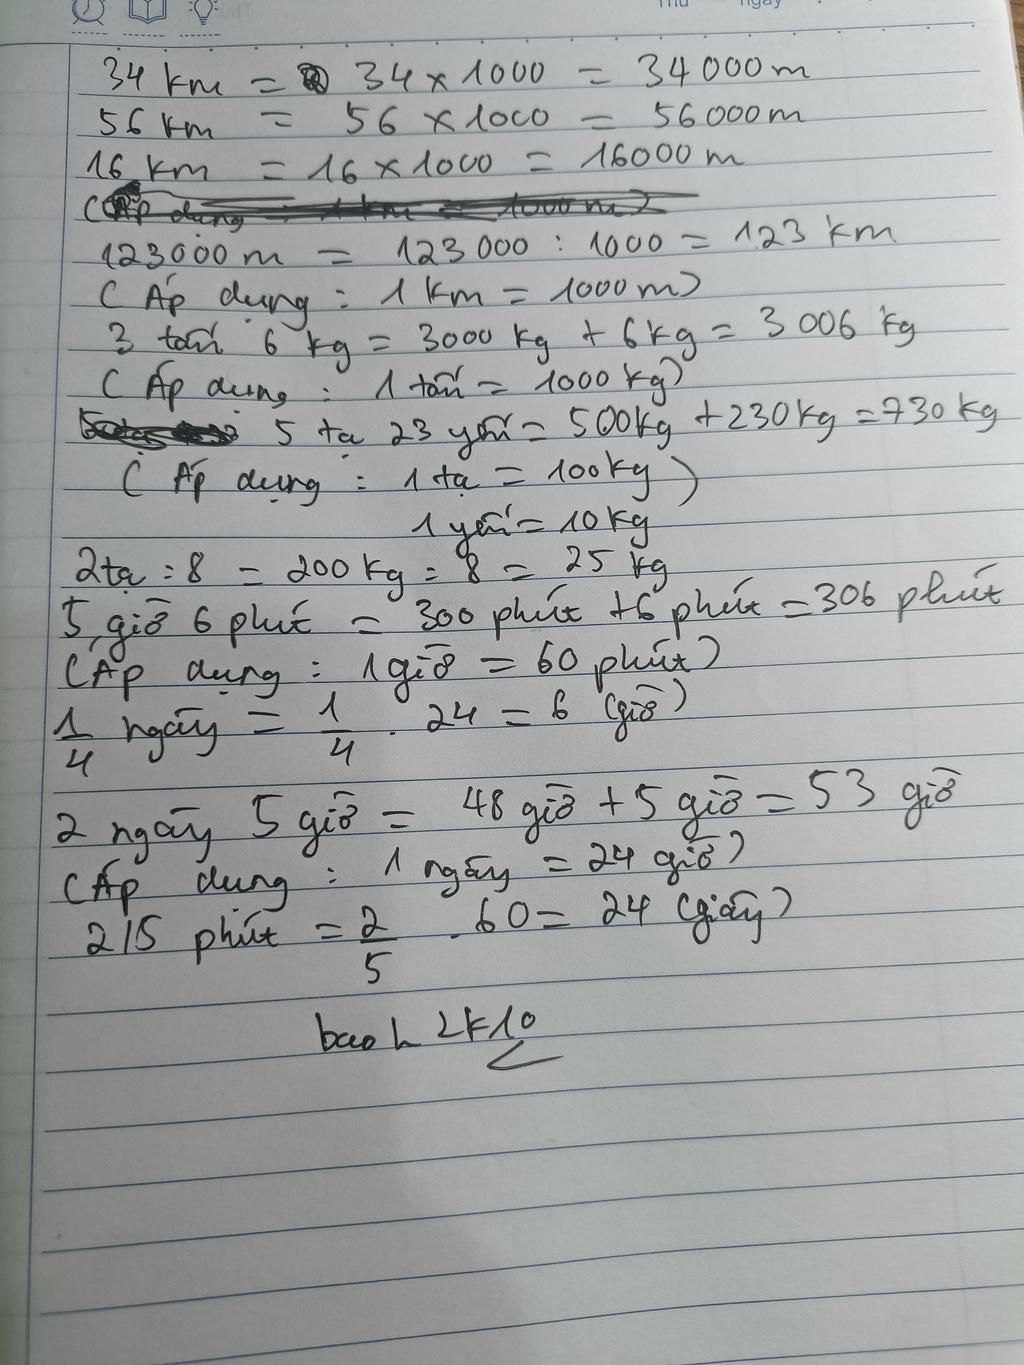 Thứ ngày
34 km = 34 × 1000 = 34000 m
56 km = 56 × 1000 = 56000 m
16 km = 16 × 1000 = 16000 m
(Áp dụng : 1 km = 1000 m)
123000 m = 123000 : 1000 = 123 km
(Áp dụng : 1 km = 1000 m)
3 tấn 6 kg = 3000 kg + 6 kg = 3006 kg
(Áp dụng : 1 tấn = 1000 kg)
5 tạ 23 yến = 500kg + 230kg = 730 kg
(Áp dụng : 1 tạ = 100kg)
1 yến = 10 kg
2 tạ : 8 = 200 kg : 8 = 25 kg
5 giờ 6 phút = 300 phút + 6 phút = 306 phút
(Áp dụng : 1 giờ = 60 phút)
1/4 ngày = 1/4 . 24 = 6 (giờ)
2 ngày 5 giờ = 48 giờ + 5 giờ = 53 giờ
(Áp dụng : 1 ngày = 24 giờ)
2/5 phút = 2/5 . 60 = 24 (giây)
bao h 2k10